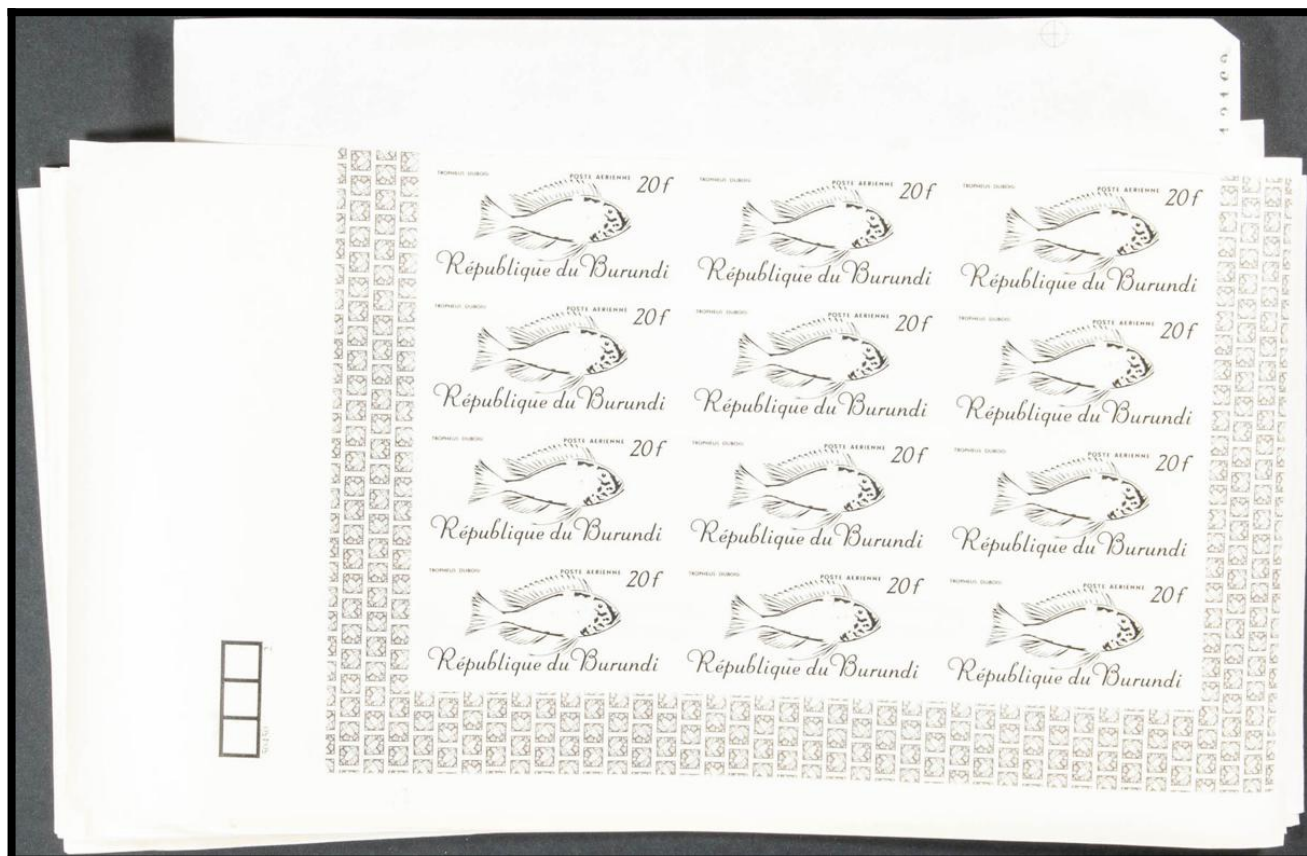 TROPHEUS DUBOISI POSTE AERIENNE 20f
République du Burundi
TROPHEUS DUBOISI POSTE AERIENNE 20f
République du Burundi
TROPHEUS DUBOISI POSTE AERIENNE 20f
République du Burundi
TROPHEUS DUBOISI POSTE AERIENNE 20f
République du Burundi
TROPHEUS DUBOISI POSTE AERIENNE 20f
République du Burundi
TROPHEUS DUBOISI POSTE AERIENNE 20f
République du Burundi
TROPHEUS DUBOISI POSTE AERIENNE 20f
République du Burundi
TROPHEUS DUBOISI POSTE AERIENNE 20f
République du Burundi
TROPHEUS DUBOISI POSTE AERIENNE 20f
République du Burundi
TROPHEUS DUBOISI POSTE AERIENNE 20f
République du Burundi
TROPHEUS DUBOISI POSTE AERIENNE 20f
République du Burundi
TROPHEUS DUBOISI POSTE AERIENNE 20f
République du Burundi